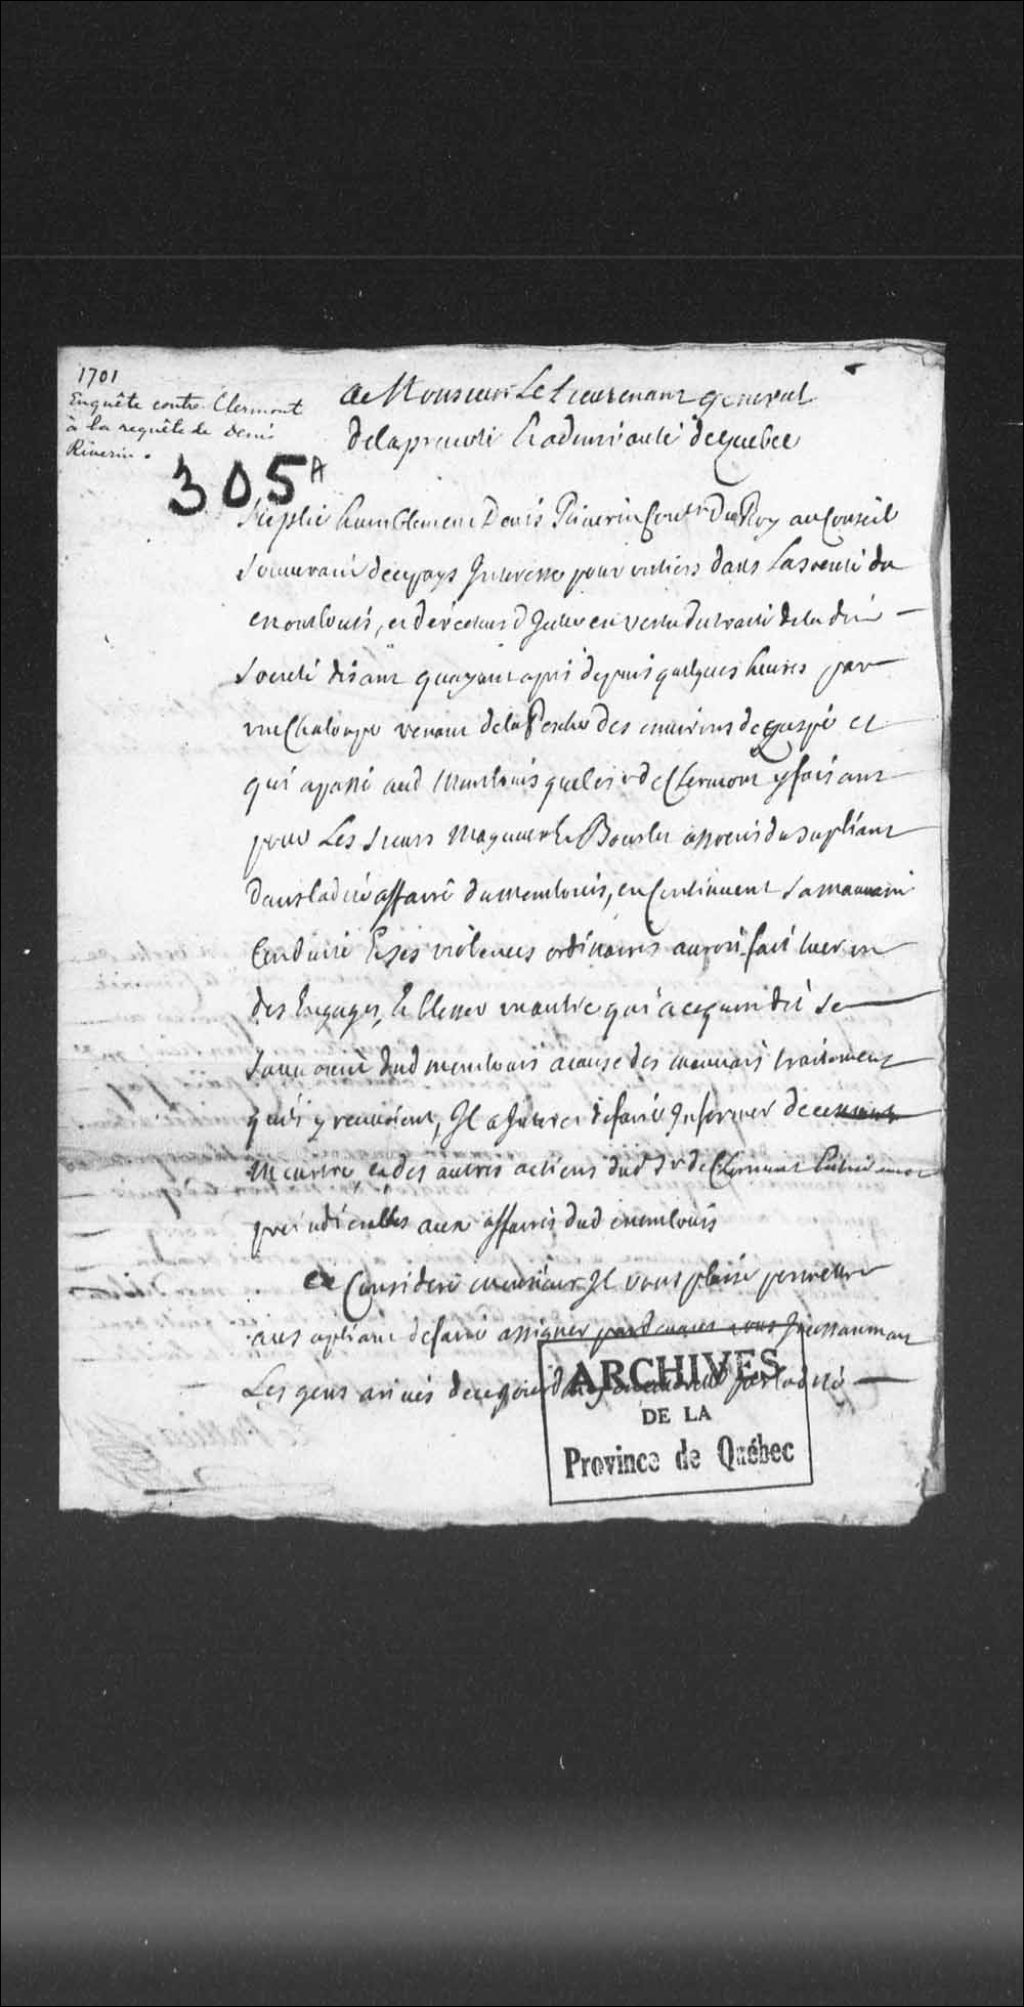 1701
Enquête contre Clermont
à la requête de Denis
Riverin.
305 A
A Monsieur Le Lieutenant general
de la prevosté & admirauté de Quebec
Suplie humblement Denis Riverin Conser du Roy au Conseil
Souverain de ce pays Interessé pour un tiers dans La Societé du
montlouis, et directeur d'Icelle en vertu du traité de la dite
Societé disant qu'ayant apris depuis quelques heures par
une Chaloupe venant de la Pesche des environs de Gaspé et
qui a passé aud Montlouis que le sr de Clermont y faisant
pour Les Sieurs Magnier & Bourlet associés du supliant
dans ladite affaire du montlouis, en Continuant sa mauvaise
Conduite & ses violences ordinaires auroit fait tuer un
des Engagés, & blesser un autre qui a ce qu'on dit se
sauvoient dud montlouis a cause des mauvais traitement
qu'ils y recevoient, Il a Interest de faire Informer de ce
Meurtre, et des autres actions dud Sr de Clermont
prejudiciables aux affaires dud montlouis
Ce Consideré monsieur Il vous plaise permettre
au supliant de faire assigner pardevant vous Incessamment
Les gens arivés de ce jourdhuy par ladite
ARCHIVES
DE LA
Province de Québec